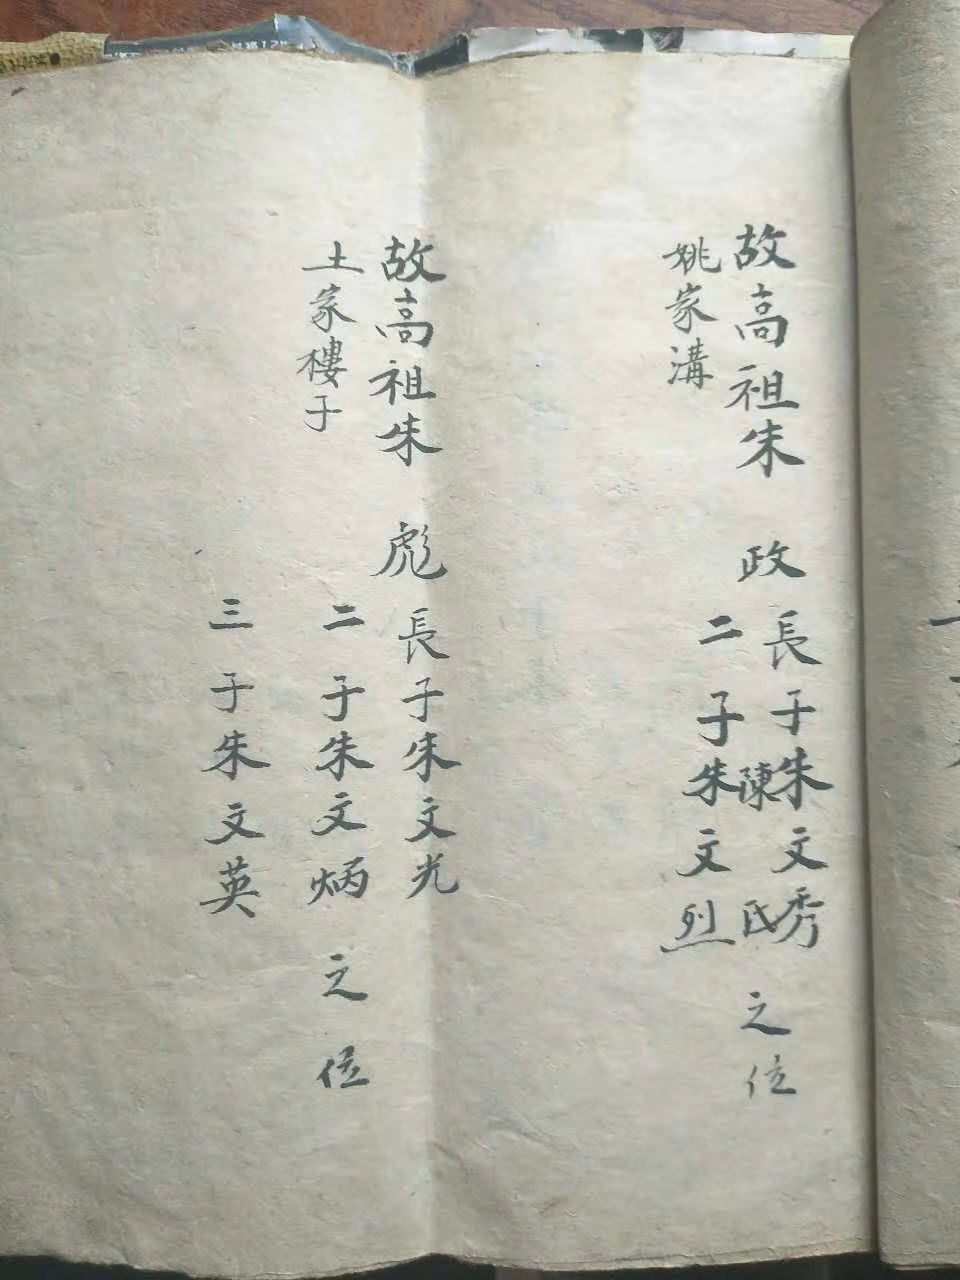 故高祖朱 政 長子朱文秀
姚家溝
陳氏 之位
二子朱文烈
故高祖朱 彪 長子朱文光
土家樓子
二子朱文炳 之位
三子朱文英